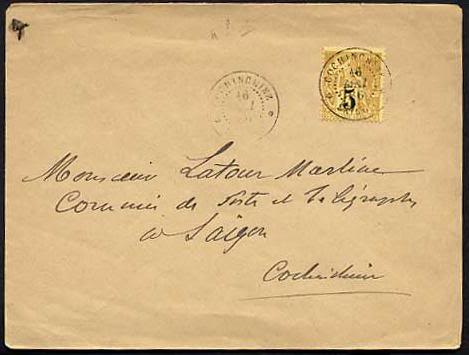 COCHINCHINE
16
COCHINCHINE
16
5
Monsieur Latour Martine
Commis de Poste et Télégraphe
a Saïgon
Cochinchine